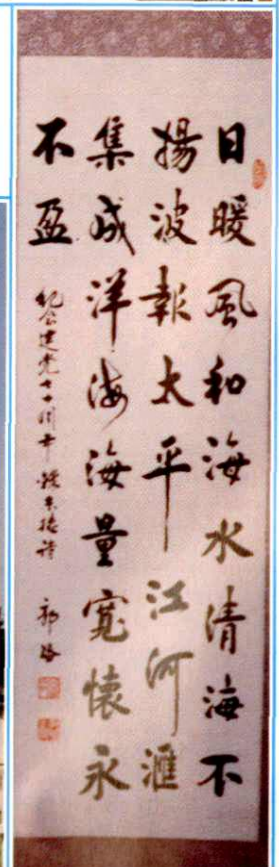 日暖風和海水清海不
揚波報太平江河滙
集成洋海海量寬懷永
不盈
纪念建党七十周年
郭